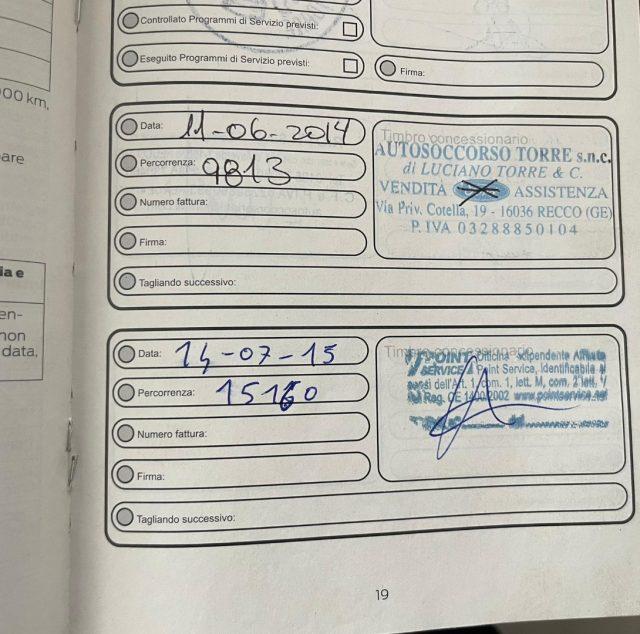 Controllato Programmi di Servizio previsti:
Eseguito Programmi di Servizio previsti:
Firma:
00 km,
are
ia e
en-
non
data,
Data: 11-06-2014
Percorrenza: 9813
Numero fattura:
Firma:
Tagliando successivo:
Timbro concessionario
AUTOSOCCORSO TORRE s.n.c.
di LUCIANO TORRE & C.
VENDITÀ ASSISTENZA
Via Priv. Cotella, 19 - 16036 RECCO (GE)
P. IVA 03288850104
Data: 14-07-15
Percorrenza: 15160
Numero fattura:
Firma:
Tagliando successivo:
Timbro concessionario
POINT Officina Indipendente Affiliata
SERVICE Point Service, Identificabile ai
sensi dell'Art. 1, com. 1, lett. M, com. 2 lett.
Reg. CE 1400/2002 www.pointservice.net
19